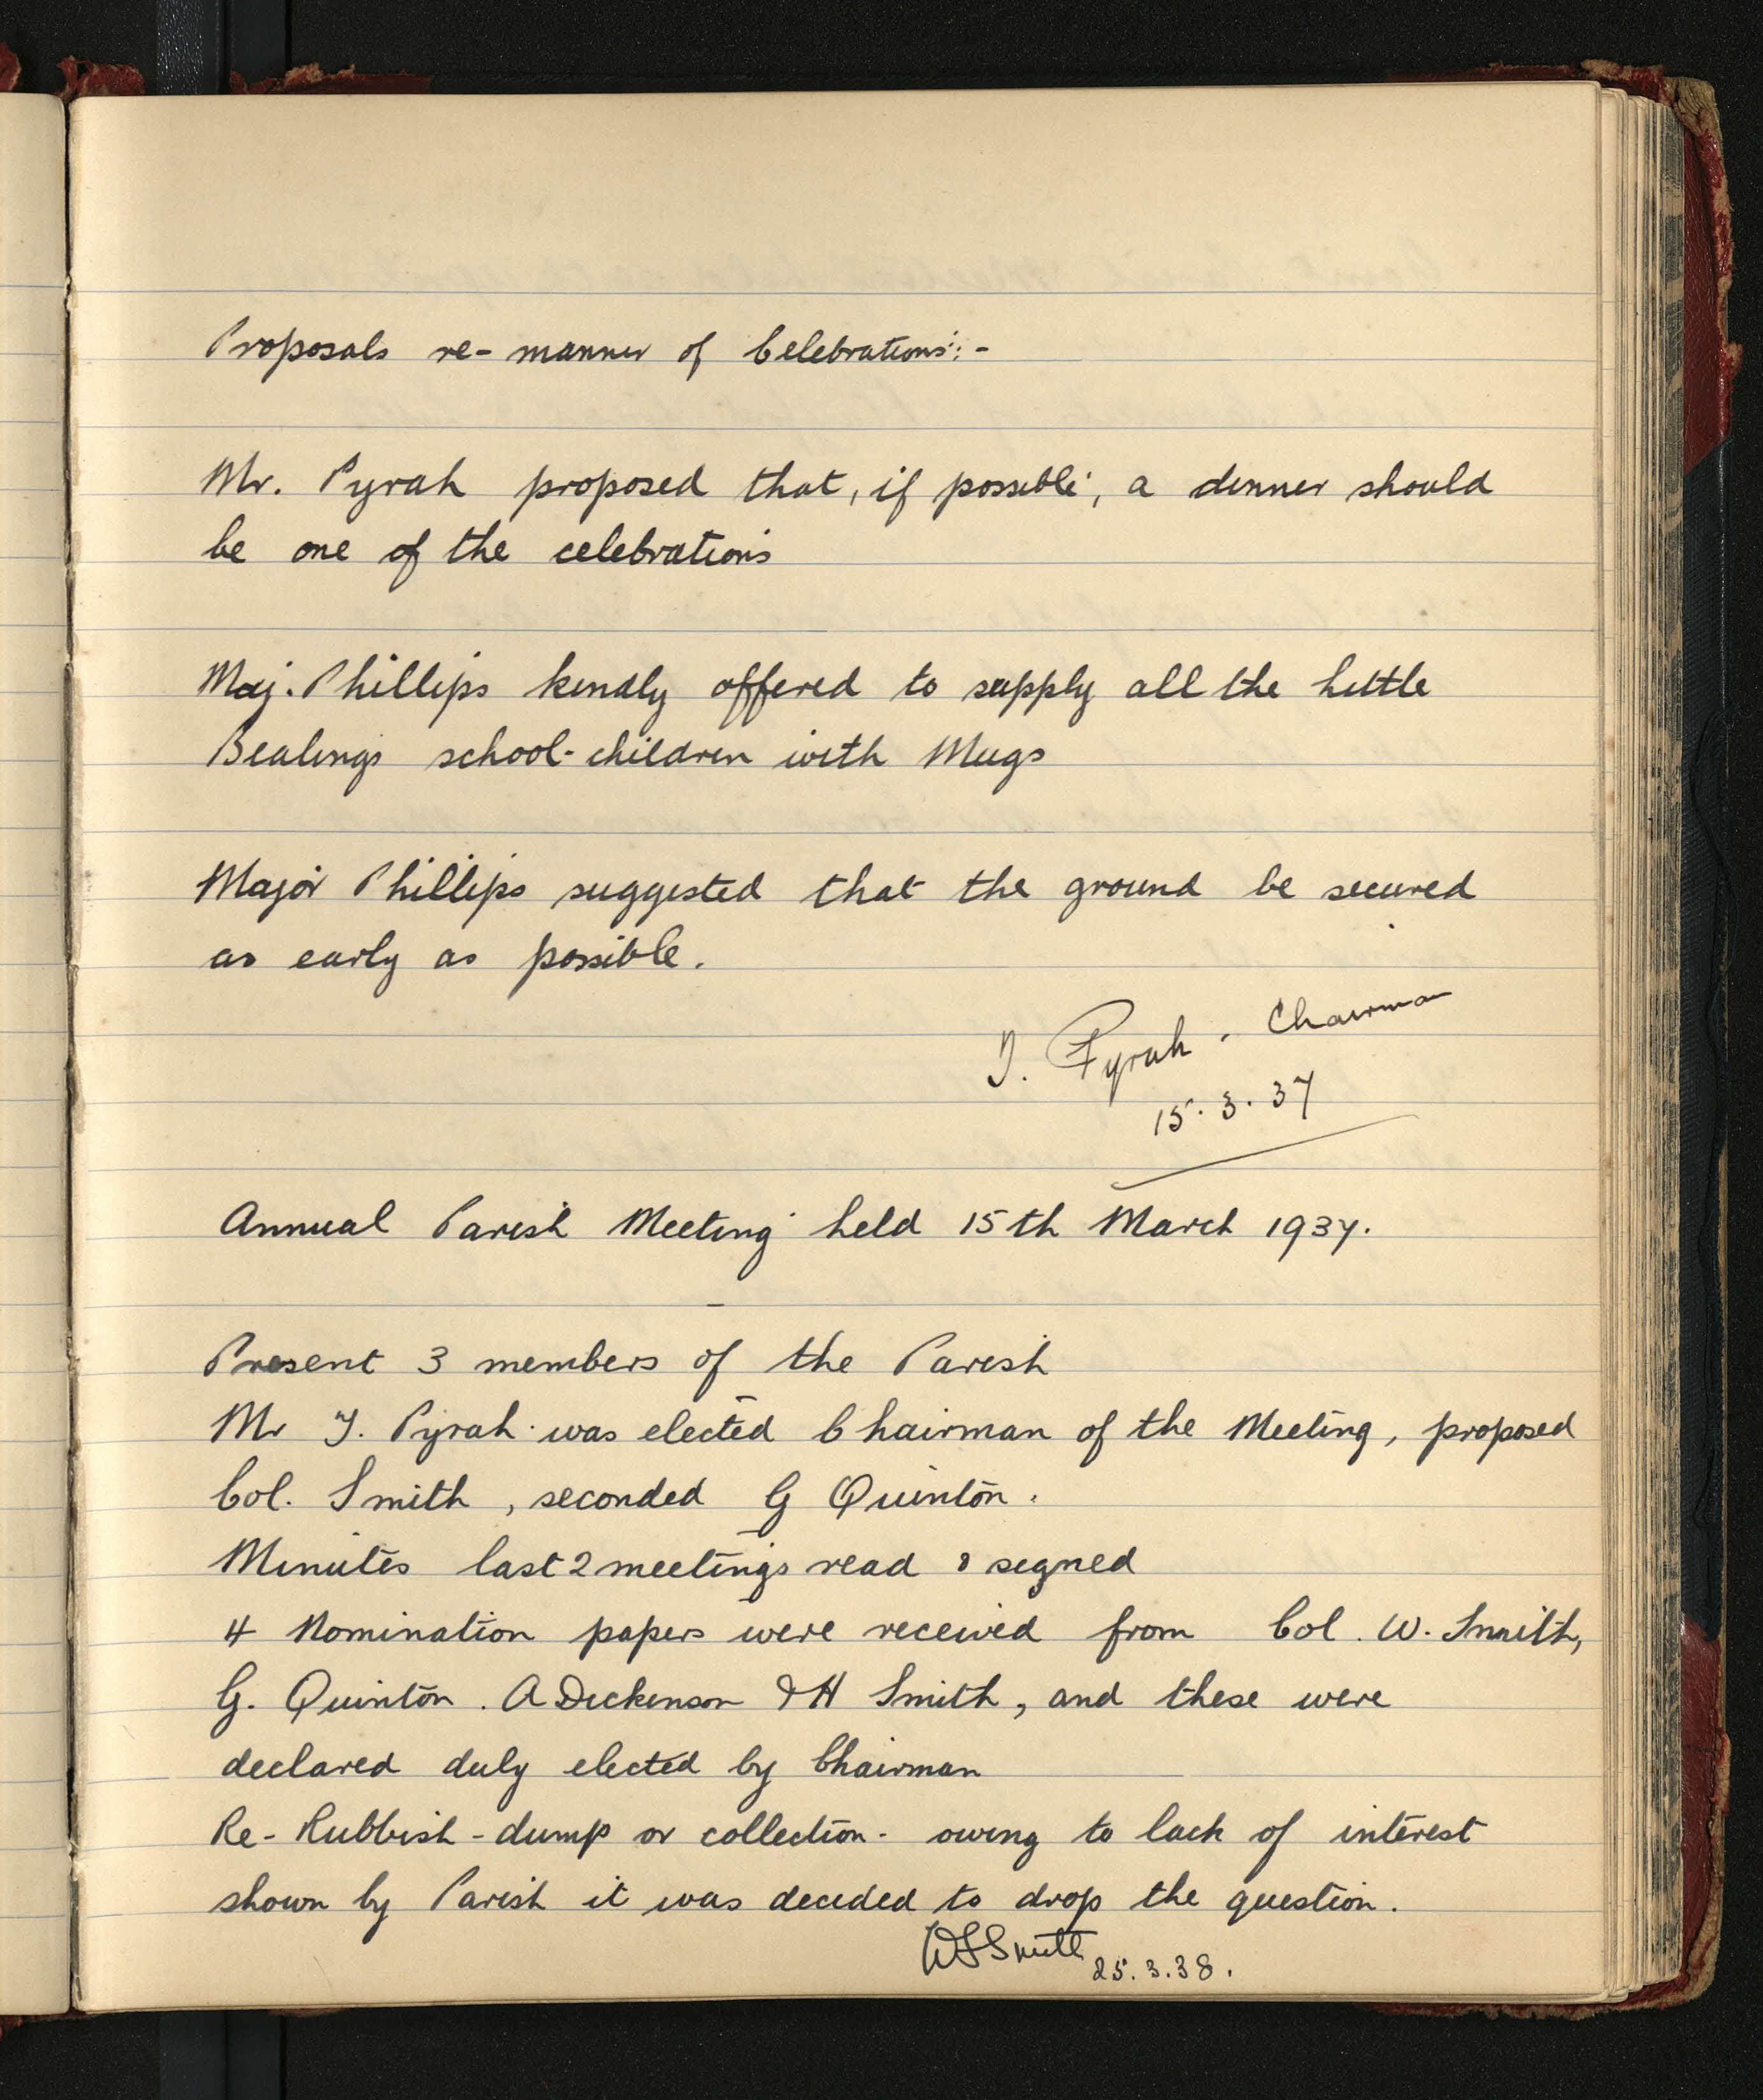 Proposals re- manner of Celebrations:-
Mr. Pyrah proposed that, if possible, a dinner should
be one of the celebrations
Maj. Phillips kindly offered to supply all the Little
Bealings school-children with Mugs
Major Phillips suggested that the ground be secured
as early as possible.
J. Pyrah. Chairman
15.3.37
Annual Parish Meeting held 15th March 1937.
Present 3 members of the Parish
Mr J. Pyrah was elected Chairman of the Meeting, proposed
Col. Smith, seconded G Quinton.
Minutes last 2 meetings read & signed
4 Nomination papers were received from Col. W. Smith,
G. Quinton. A Dickenson & H Smith, and these were
declared duly elected by Chairman
Re- Rubbish-dump or collection- owing to lack of interest
shown by Parish it was decided to drop the question.
WSSmith 25.3.38.